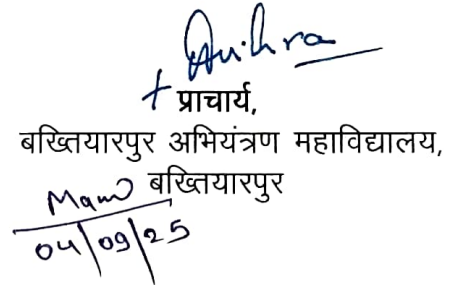 प्राचार्य,
बख्तियारपुर अभियंत्रण महाविद्यालय,
बख्तियारपुर
04/09/25